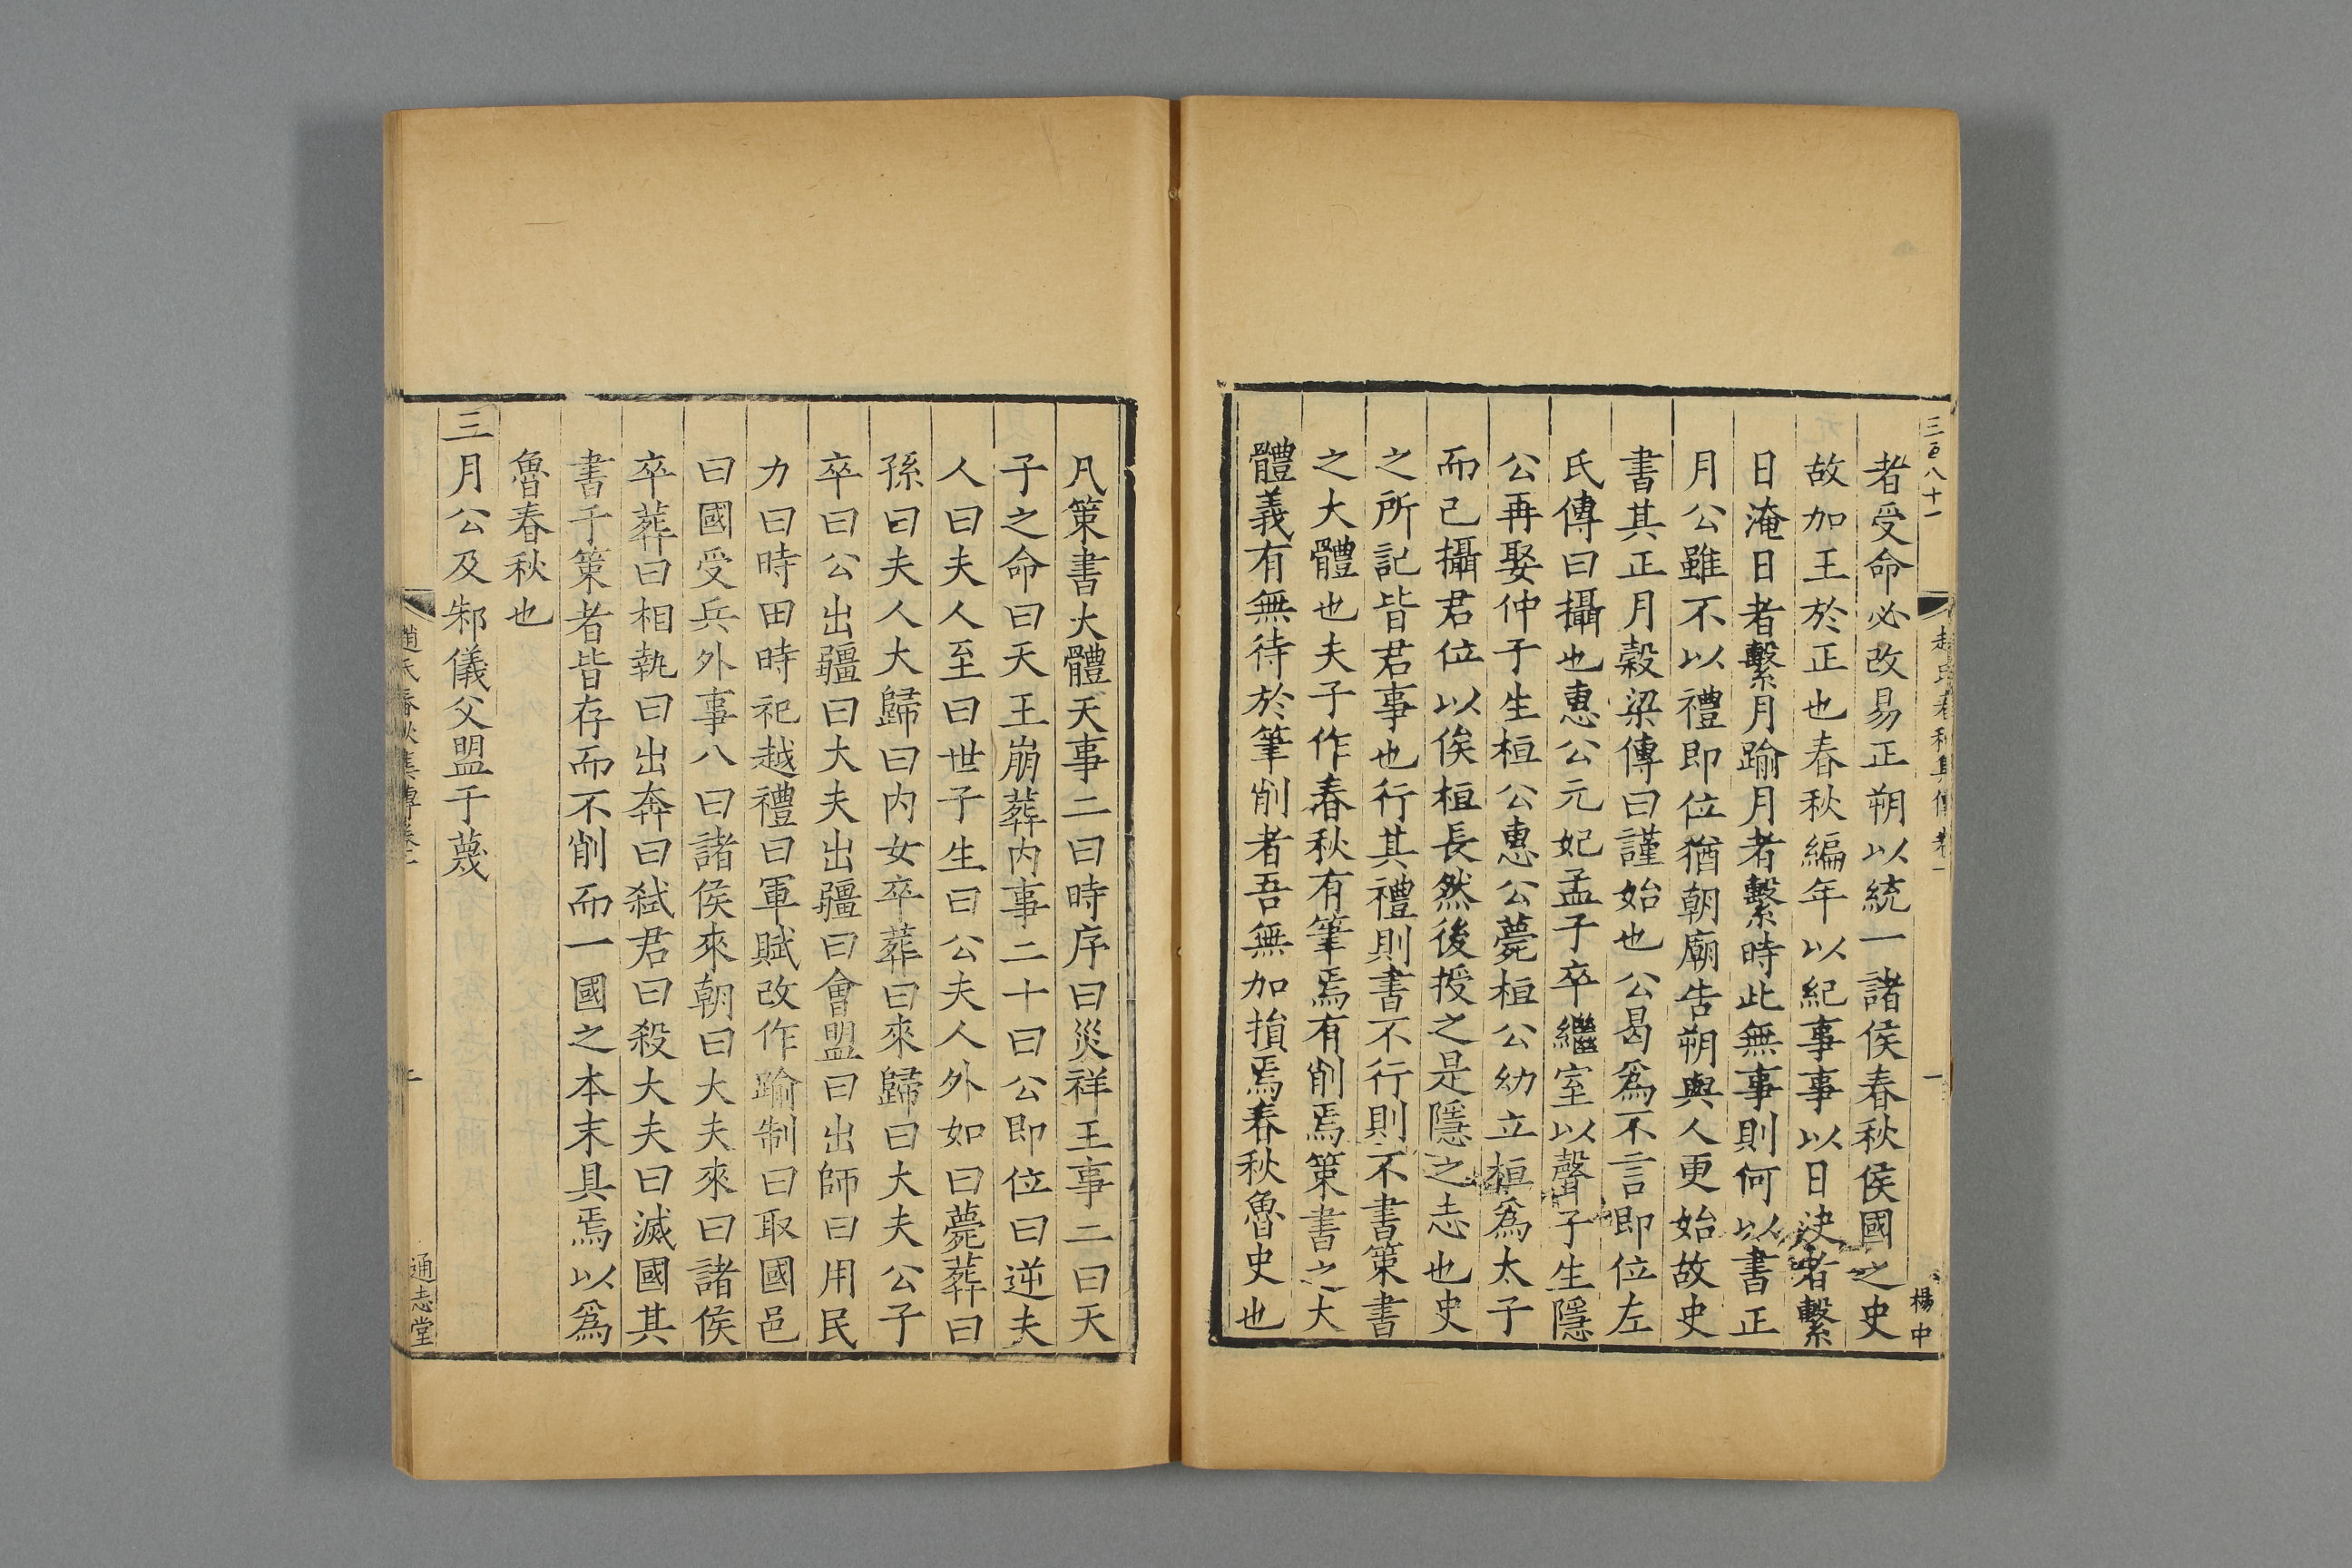 三百八十一
趙氏春秋集傳卷一
一
楊中
者受命必改易正朔以統一諸侯春秋侯國之史
故加王於正也春秋編年以紀事事以日決者繫
日淹日者繫月踰月者繫時此無事則何以書正
月公雖不以禮即位猶朝廟告朔與人更始故史
書其正月穀梁傳曰謹始也公曷爲不言即位左
氏傳曰攝也惠公元妃孟子卒繼室以聲子生隱
公再娶仲子生桓公惠公薨桓公幼立桓爲太子
而己攝君位以俟桓長然後授之是隱之志也史
之所記皆君事也行其禮則書不行則不書策書
之大體也夫子作春秋有筆焉有削焉策書之大
體義有無待於筆削者吾無加損焉春秋魯史也
凡策書大體天事二曰時序曰災祥王事二曰天
子之命曰天王崩葬内事二十曰公即位曰逆夫
人曰夫人至曰世子生曰公夫人外如曰薨葬曰
孫曰夫人大歸曰内女卒葬曰來歸曰大夫公子
卒曰公出疆曰大夫出疆曰會盟曰出師曰用民
力曰時田時祀越禮曰軍賦改作踰制曰取國邑
曰國受兵外事八曰諸侯來朝曰大夫來曰諸侯
卒葬曰相執曰出奔曰弑君曰殺大夫曰滅國其
書于策者皆存而不削而一國之本末具焉以爲
魯春秋也
三月公及邾儀父盟于蔑
趙氏春秋集傳卷一
通志堂